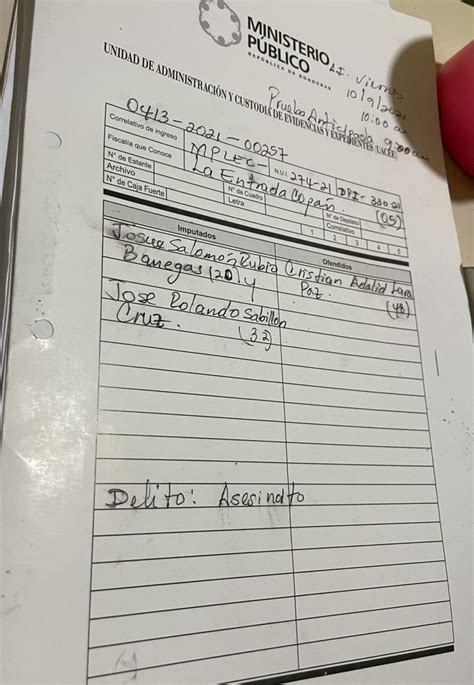 MINISTERIO
PÚBLICO
REPÚBLICA DE HONDURAS
A.I. Viernes
10/9/2021
10:00 am
Prueba Anticipada 9:00 am
UNIDAD DE ADMINISTRACIÓN Y CUSTODIA DE EVIDENCIAS Y EXPEDIENTES (UACEE)
0413-2021-00257
Correlativo de ingreso
MPLEC- N.U.I. 274-21 DPI-330-21
Fiscalía que Conoce La Entrada Copán. (05)
N° de Estante N° de Cuadro N° de Depósito
Archivo Letra Correlativo
N° de Caja Fuerte 1 2 3 4 5
Imputados Ofendidos
Josue Salomón Rubio Cristian Adalid Lara
Banegas (20) y Paz. (48)
Jose Rolando Sabillon
Cruz. (32)
Delito: Asesinato